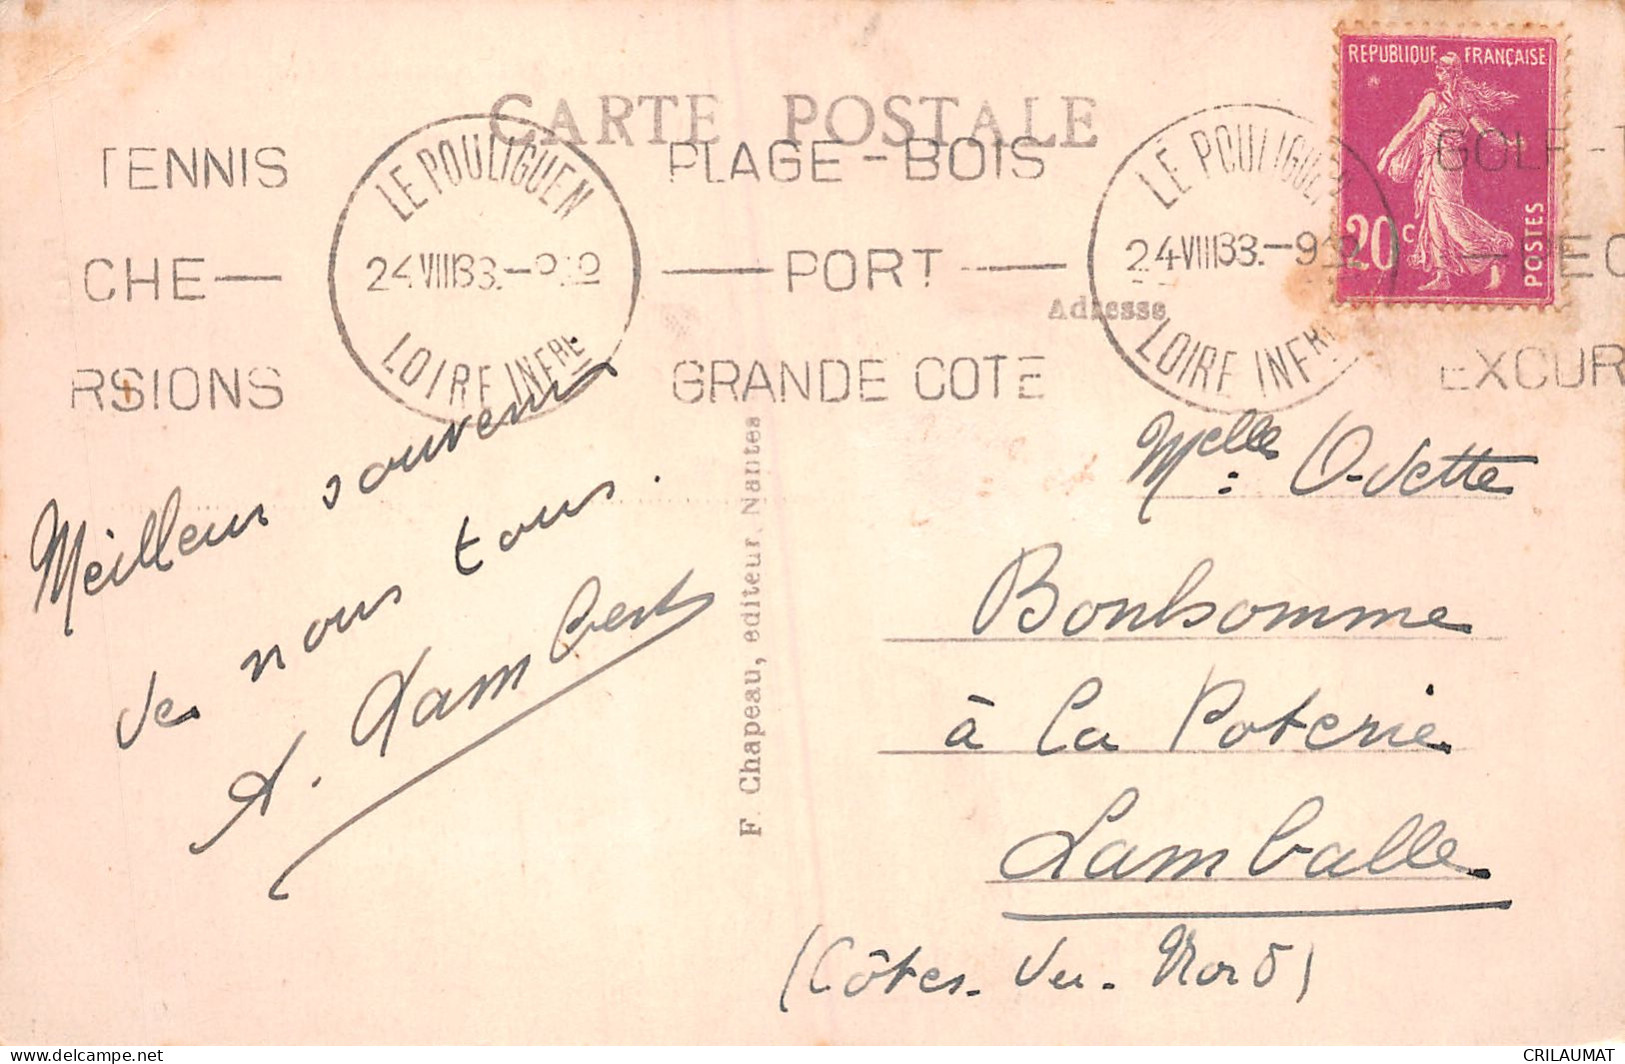 CARTE POSTALE
REPUBLIQUE FRANÇAISE
20 c
POSTES
TENNIS
CHE —
RSIONS
LE POULIGUEN
24 VIII 33. - 9
LOIRE INFRE
PLAGE - BOIS
— PORT —
GRANDE COTE
LE POULIGUEN
24 VIII 33. - 9
LOIRE INFRE
GOLF -
— PEC
EXCUR
Adresse
Meilleur souvenir
de nous tous.
A. Lambert
F. Chapeau, editeur, Nantes
Melle Odette
Bonhomme
à La Poterie
Lamballe
(Côtes-du-Nord)
CRILAUMAT
delcampe.net